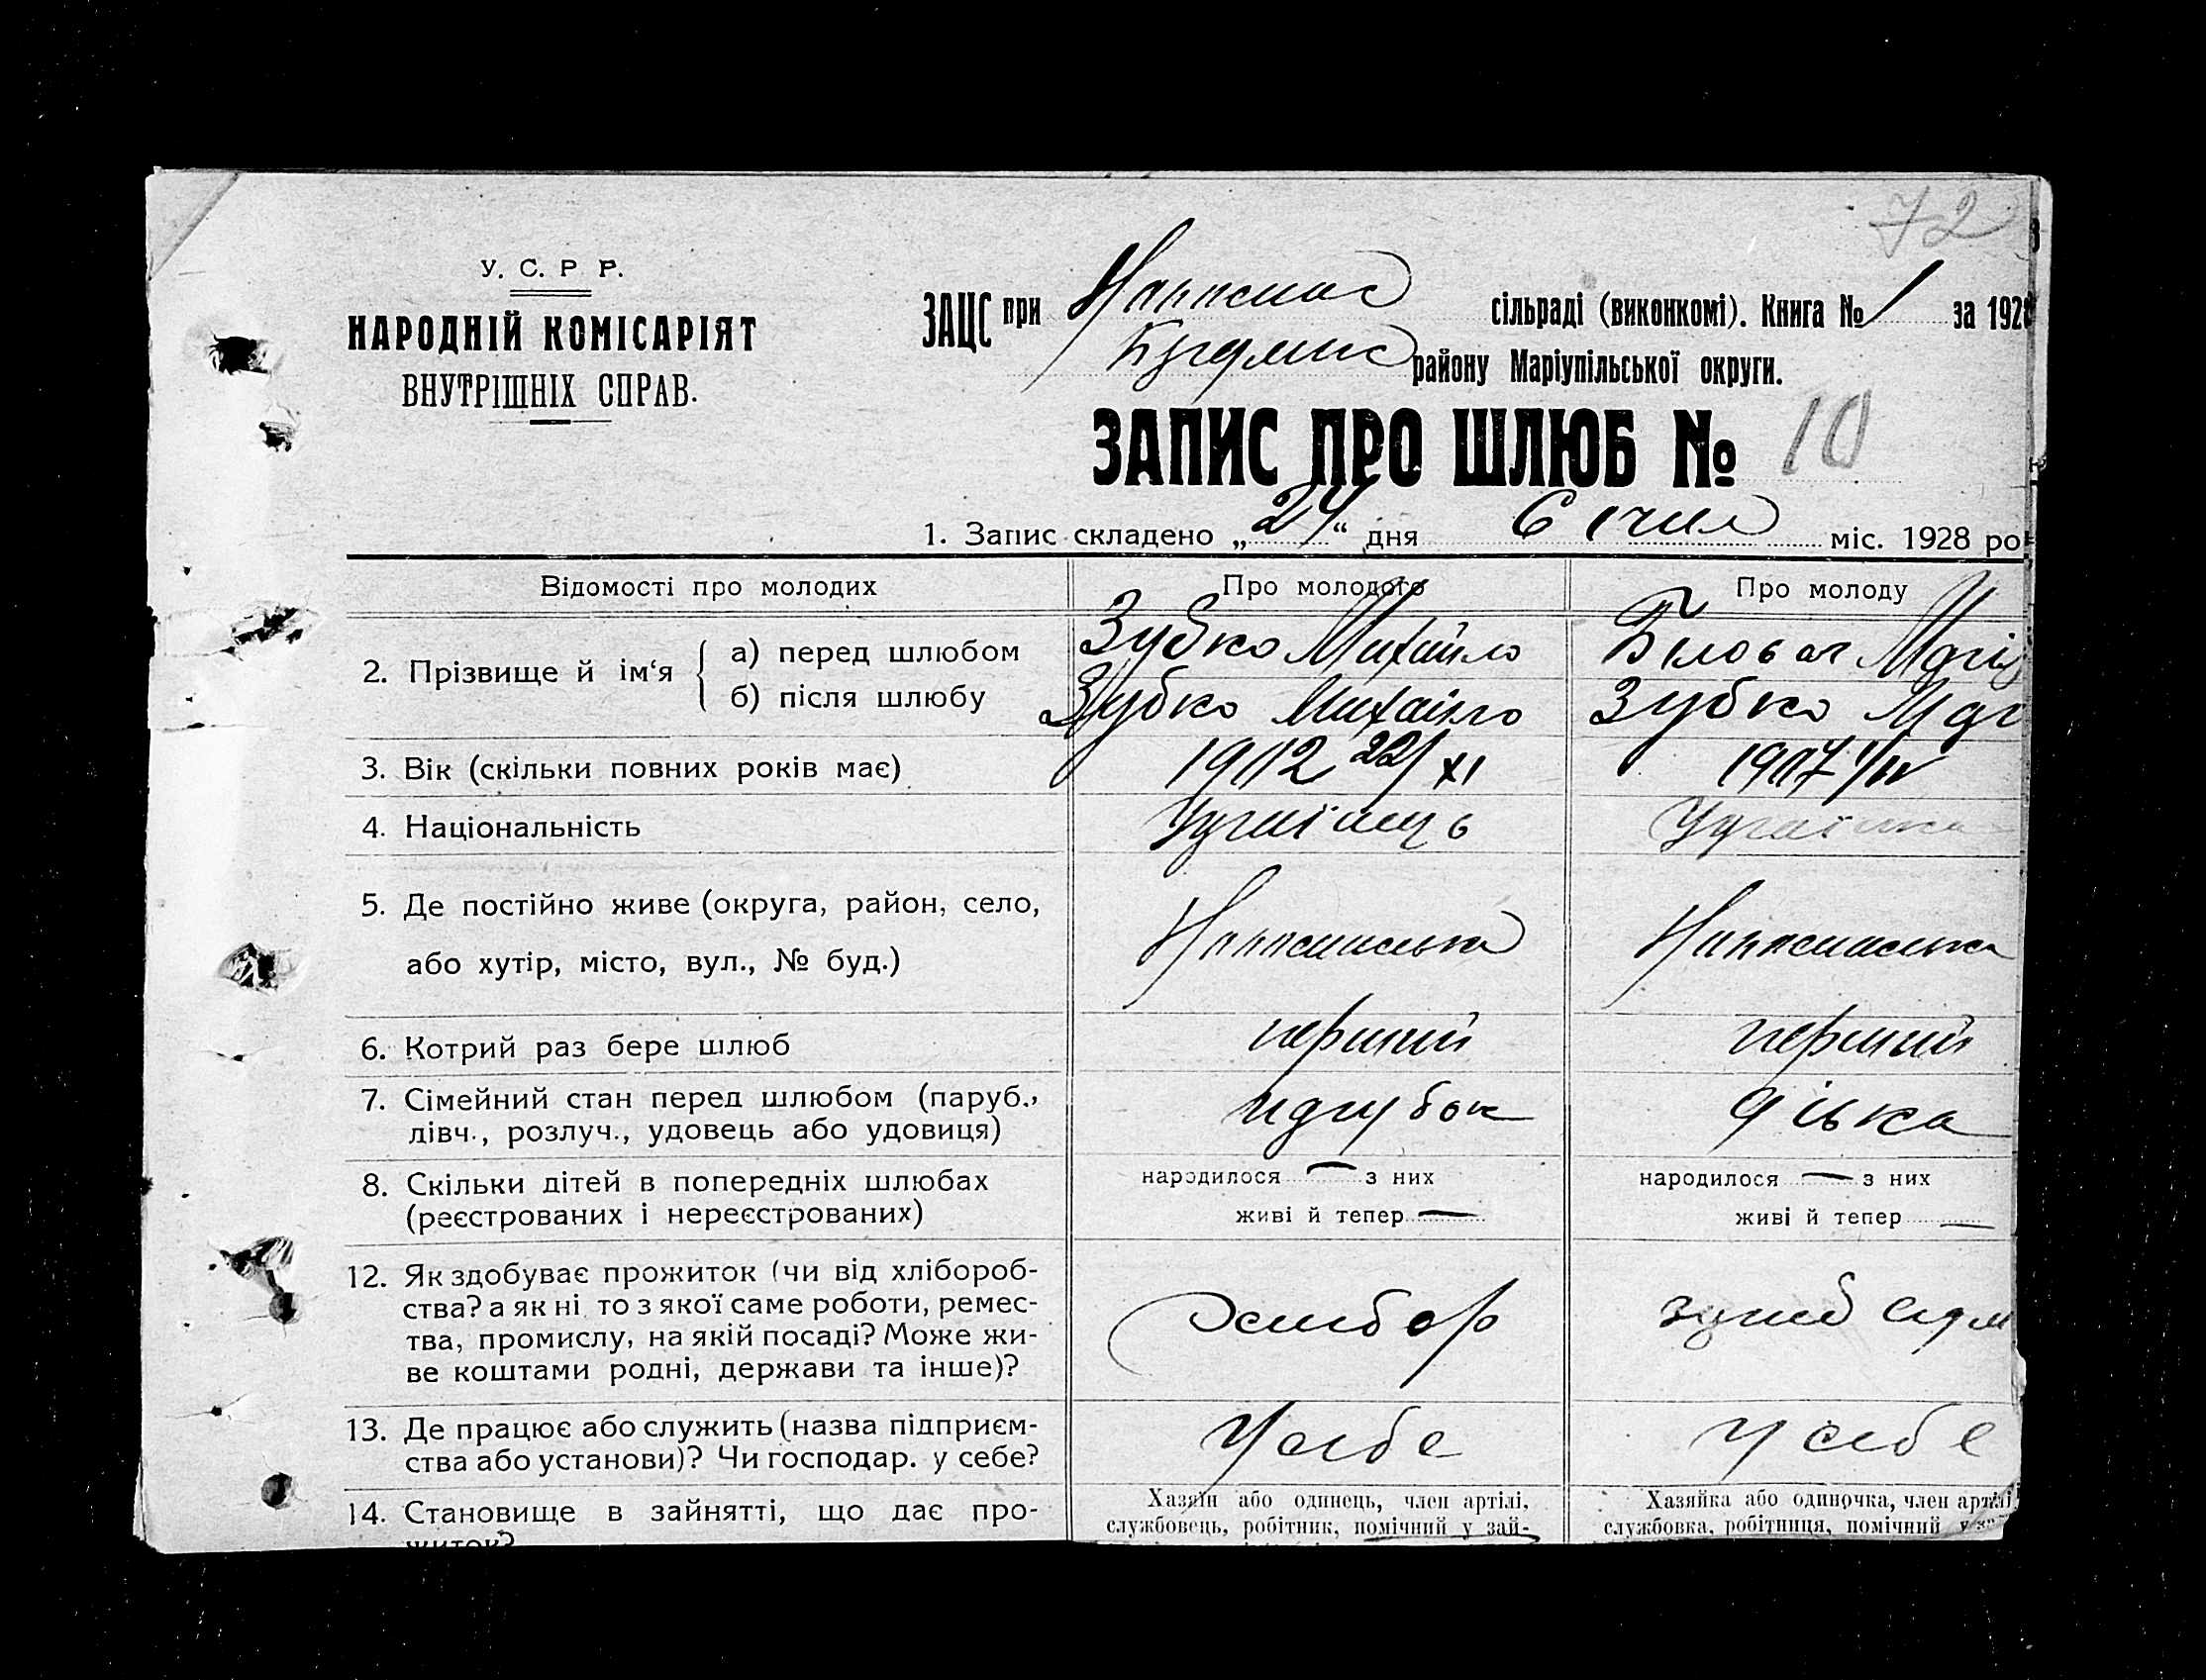 72
У. С. Р Р.
НАРОДНІЙ КОМІСАРІЯТ
ВНУТРІШНІХ СПРАВ.
ЗАЦС при сільраді (виконкомі). Книга № 1 за 1928
району Маріупільської округи.
ЗАПИС ПРО ШЛЮБ № 10
1. Запис складено „24“ дня Січня міс. 1928 ро
Відомості про молодих Про молодого Про молоду
2. Прізвище й ім‘я
а) перед шлюбом Зубко Михайло
б) після шлюбу Зубко Михайло Зубко
3. Вік (скільки повних років має) 1902 22/XI 1907 1/IV
4. Національність Українець Українка
5. Де постійно живе (округа, район, село,
або хутір, місто, вул., № буд.)
6. Котрий раз бере шлюб перший перший
7. Сімейний стан перед шлюбом (паруб.,
дівч., розлуч., удовець або удовиця) парубок дівка
8. Скільки дітей в попередніх шлюбах народилося — з них народилося — з них
(реєстрованих і нереєстрованих) живі й тепер — живі й тепер —
12. Як здобуває прожиток (чи від хлібороб-
ства? а як ні то з якої саме роботи, ремес-
тва, промислу, на якій посаді? Може жи-
ве коштами родні, держави та інше)?
хлибор
13. Де працює або служить (назва підприєм-
ства або установи)? Чи господар. у себе? У себе У себе
14. Становище в зайнятті, що дає про-
житок?
Хазяїн або одинець, член артілі,
службовець, робітник, помічний у зай-
Хазяйка або одиночка, член артілі,
службовка, робітниця, помічний у